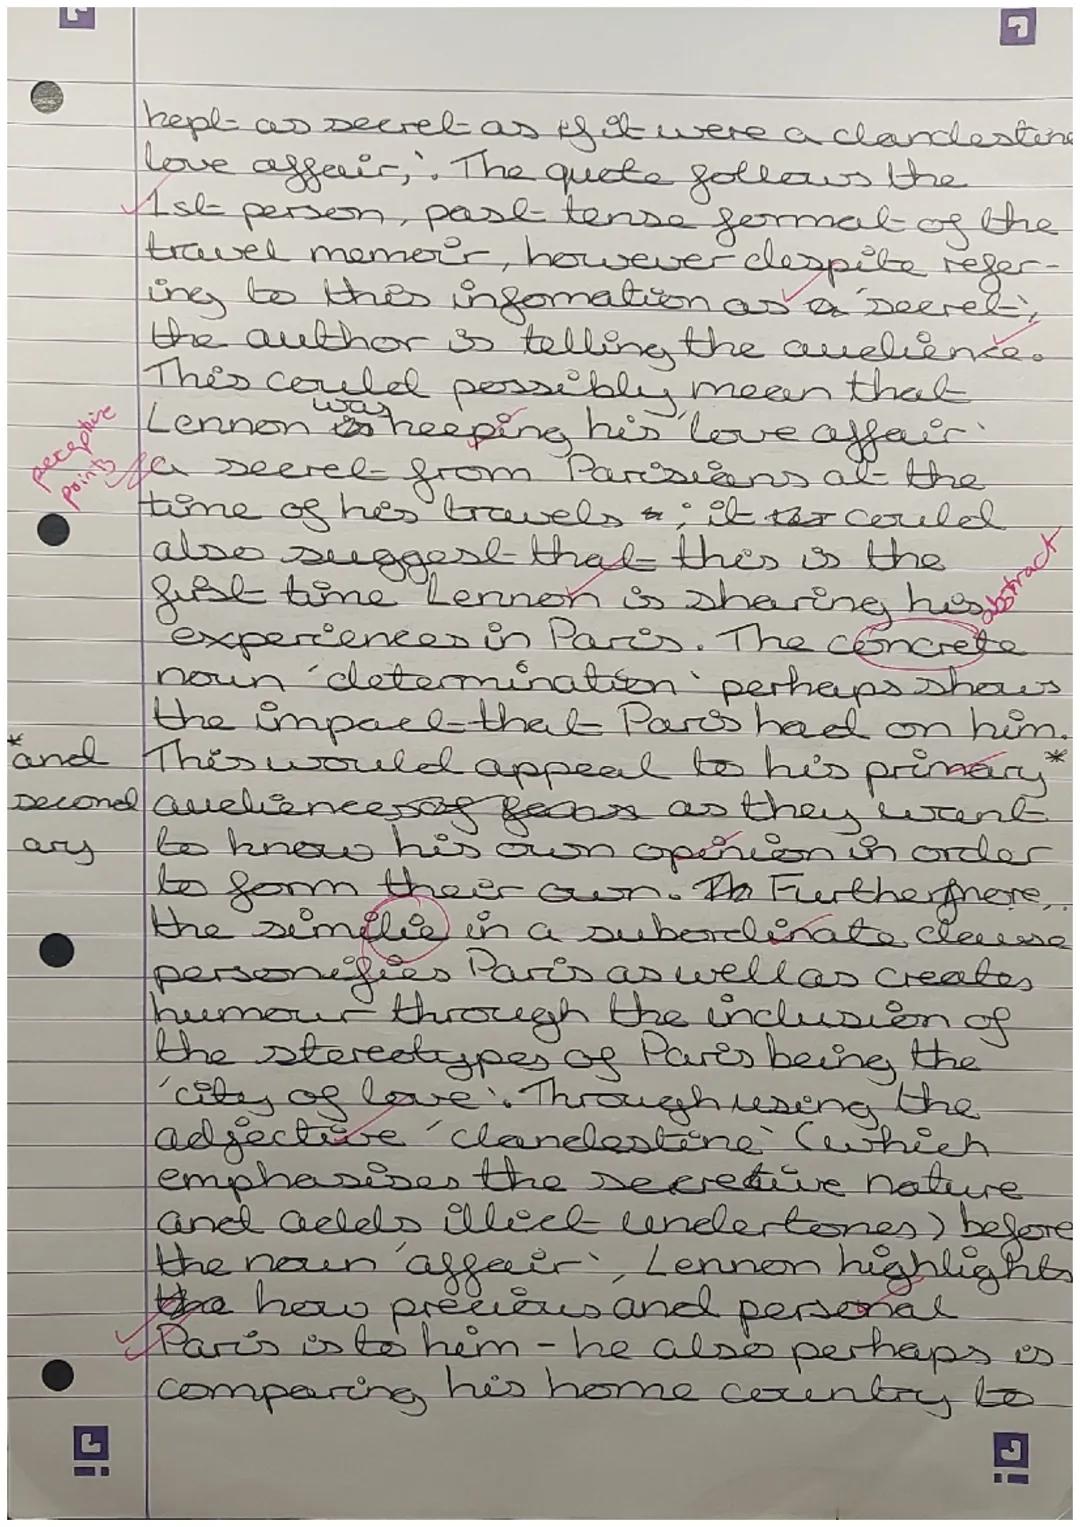 kept as secret as if it were a clandestine
love affair,'. The quote follows the
1st person, past tense format of the
travel memoir, however despite refer-
ing to this infomation as a 'secret',
the author is telling the audience.
This could possibly mean that
was
Lennon is keeping his 'love affair'
perceptive
points
a secret from Parisians at the
time of his travels ; it could
also suggest that this is the
fist time Lennon is sharing his
abstract
experiences in Paris. The concrete
noun 'determination' perhaps shows
the impact that Paris had on him.
*and This would appeal to his primary*
second audiences of fans as they want
ary to know his own opinion in order
to form their own. Th Furthermore,
the similie in a subordinate clause
personifies Paris as well as creates
humour through the inclusion of
the stereotypes of Paris being the
'city of love'. Through using the
adjective 'clandestine' (which
emphasises the secretive nature
and adds illict undertones) before
the noun 'affair', Lennon highlights
the how precious and personal
Paris is to him - he also perhaps is
comparing his home country to